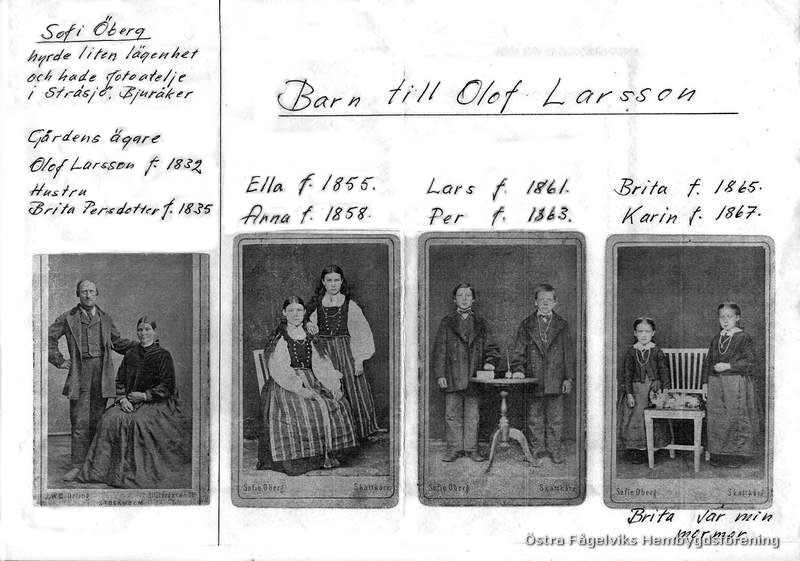 Sofi Öberg
hyrde liten lägenhet
och hade fotoatelje
i Stråsjö, Bjuråker
Gårdens ägare
Olof Larsson f. 1832
Hustru
Brita Persdotter f. 1835
Barn till Olof Larsson
Ella f. 1855.
Anna f. 1858.
Lars f. 1861.
Per f. 1863.
Brita f. 1865.
Karin f. 1867.
STOCKHOLM
Sofie Öberg Skattkärr
Sofie Öberg Skattkärr
Sofie Öberg Skattkärr
Brita var min
mormor
Östra Fågelviks Hembygdsförening